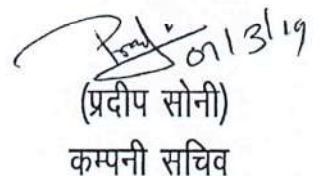 01/3/19
(प्रदीप सोनी)
कम्पनी सचिव